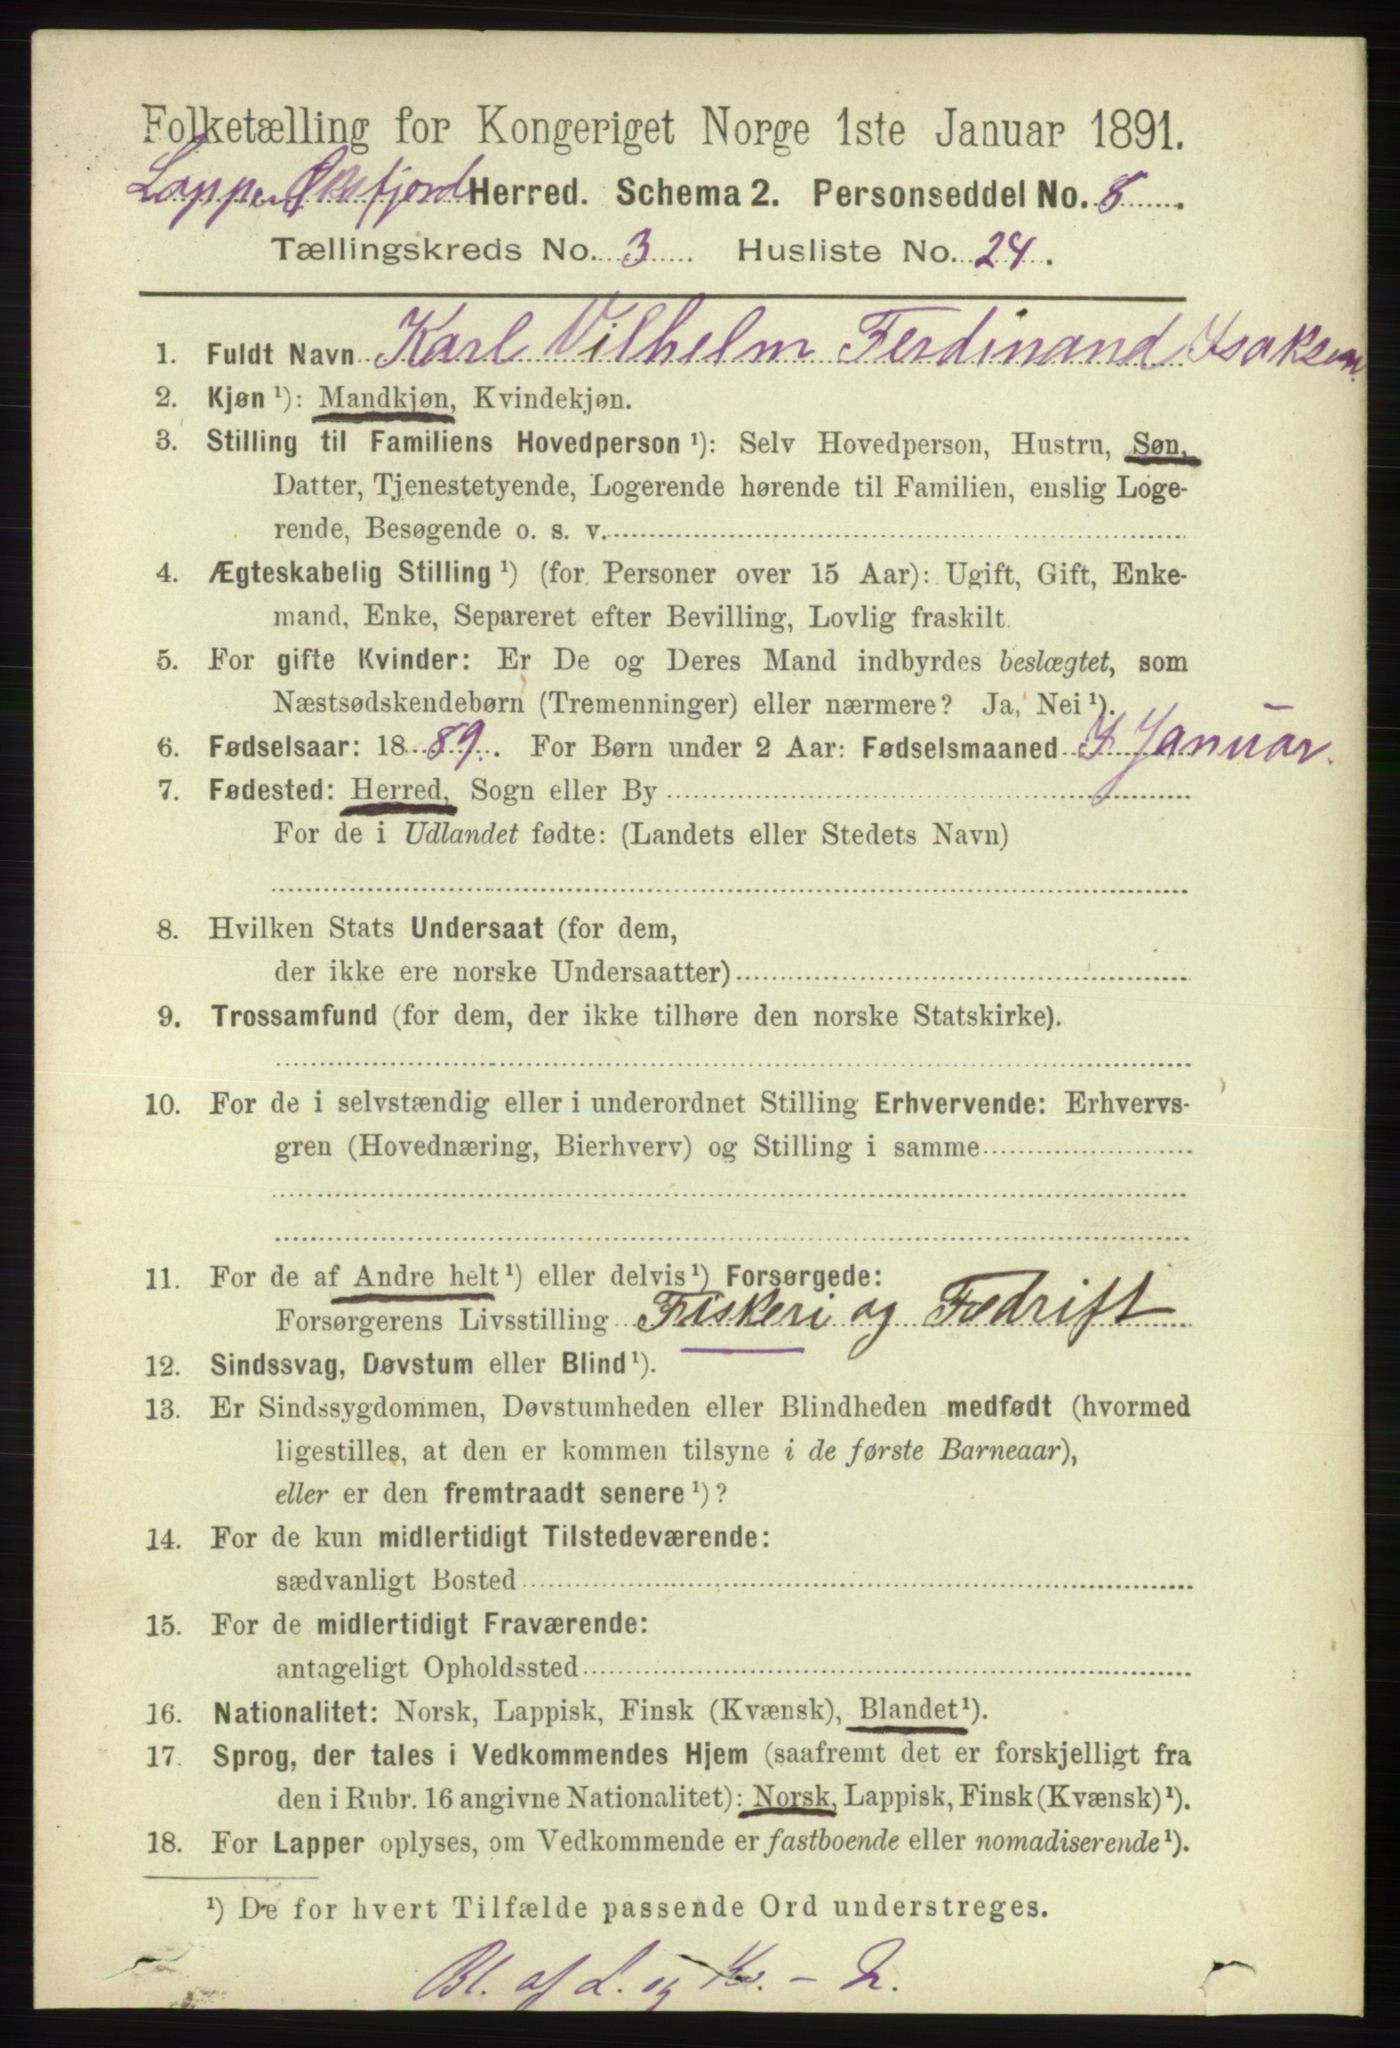 Folketælling for Kongeriget Norge 1ste Januar 1891.
Loppen Øksfjord Herred. Schema 2. Personseddel No. 8.
Tællingskreds No. 3 Husliste No. 24.
1. Fuldt Navn Karl Vilhelm Ferdinand Isaksen.
2. Kjøn ¹): Mandkjøn, Kvindekjøn.
3. Stilling til Familiens Hovedperson ¹): Selv Hovedperson, Hustru, Søn,
Datter, Tjenestetyende, Logerende hørende til Familien, enslig Loge-
rende, Besøgende o. s. v.
4. Ægteskabelig Stilling ¹) (for Personer over 15 Aar): Ugift, Gift, Enke-
mand, Enke, Separeret efter Bevilling, Lovlig fraskilt.
5. For gifte Kvinder: Er De og Deres Mand indbyrdes beslægtet, som
Næstsødskendebørn (Tremenninger) eller nærmere? Ja, Nei ¹).
6. Fødselsaar: 1889. For Børn under 2 Aar: Fødselsmaaned I Januar.
7. Fødested: Herred, Sogn eller By
For de i Udlandet fødte: (Landets eller Stedets Navn)
8. Hvilken Stats Undersaat (for dem,
der ikke ere norske Undersaatter)
9. Trossamfund (for dem, der ikke tilhøre den norske Statskirke).
10. For de i selvstændig eller i underordnet Stilling Erhvervende: Erhvervs-
gren (Hovednæring, Bierhverv) og Stilling i samme
11. For de af Andre helt ¹) eller delvis ¹) Forsørgede:
Forsørgerens Livsstilling Fiskeri og Fædrift
12. Sindssvag, Døvstum eller Blind ¹).
13. Er Sindssygdommen, Døvstumheden eller Blindheden medfødt (hvormed
ligestilles, at den er kommen tilsyne i de første Barneaar),
eller er den fremtraadt senere ¹)?
14. For de kun midlertidigt Tilstedeværende:
sædvanligt Bosted
15. For de midlertidigt Fraværende:
antageligt Opholdssted
16. Nationalitet: Norsk, Lappisk, Finsk (Kvænsk), Blandet ¹).
17. Sprog, der tales i Vedkommendes Hjem (saafremt det er forskjelligt fra
den i Rubr. 16 angivne Nationalitet): Norsk, Lappisk, Finsk (Kvænsk) ¹).
18. For Lapper oplyses, om Vedkommende er fastboende eller nomadiserende ¹).
¹) De for hvert Tilfælde passende Ord understreges.
Bl. af L. og Kv. –